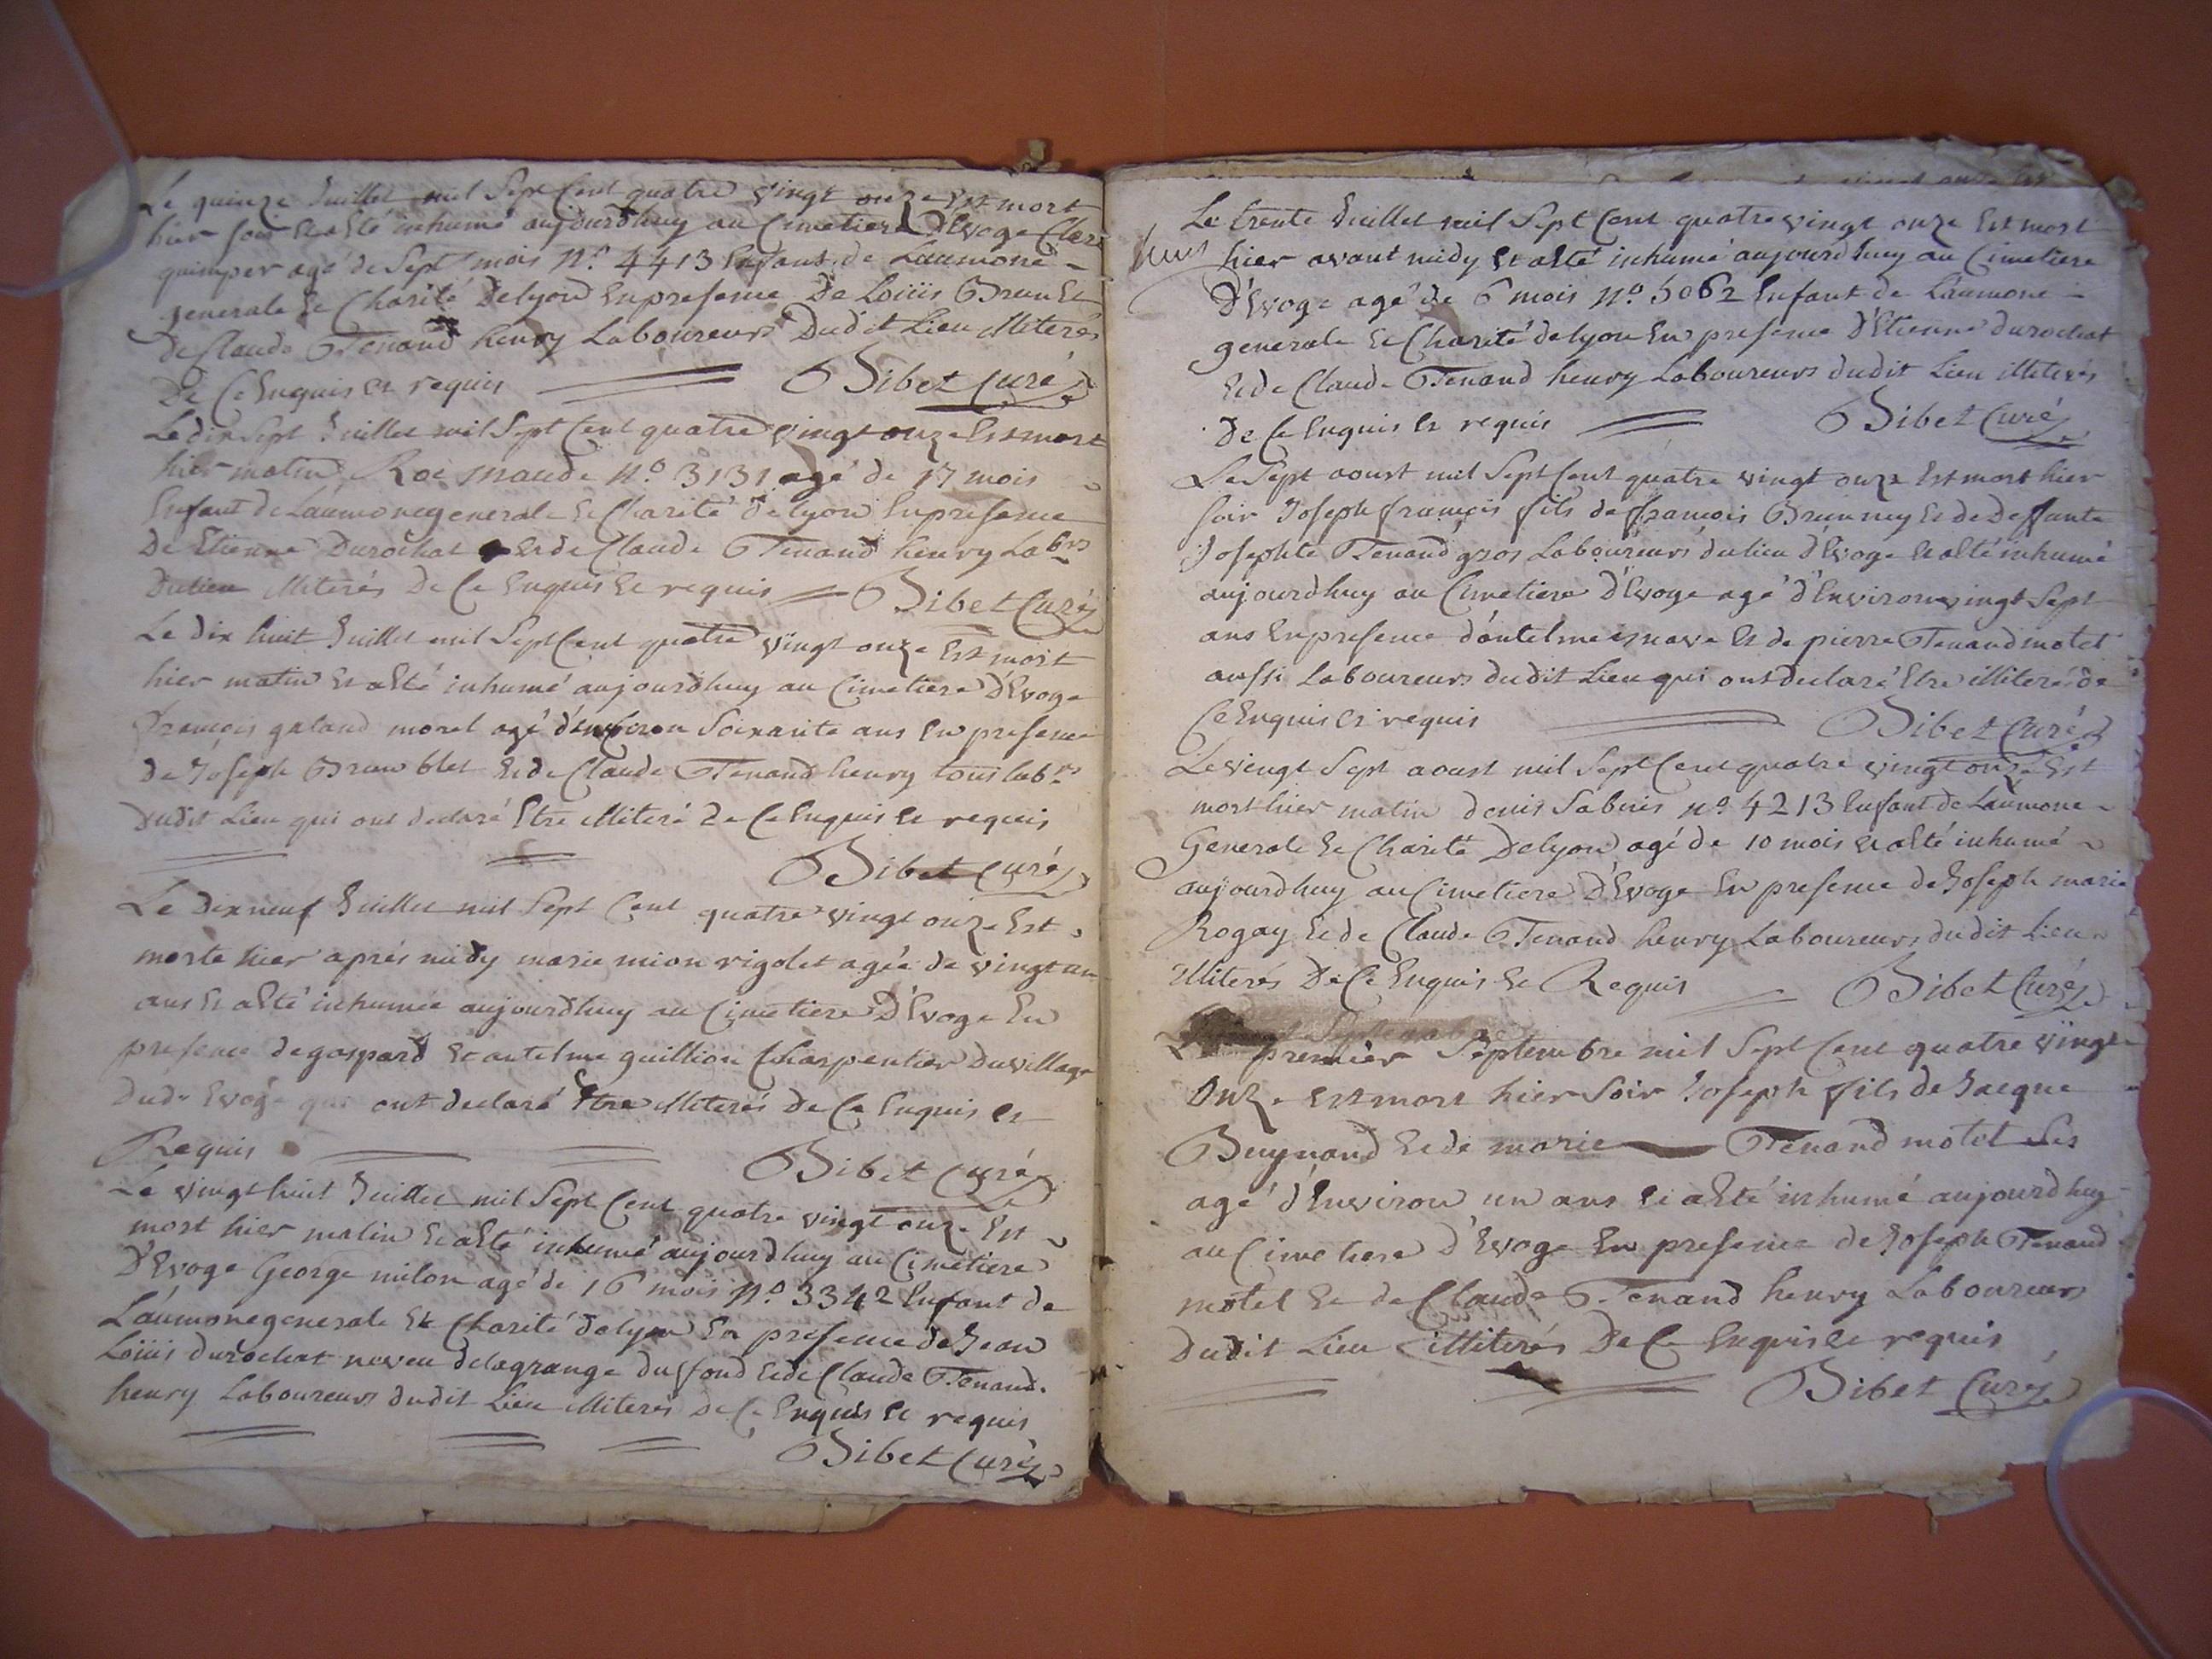 Le quinze Juillet mil Sept Cent quatre vingt onze Est mort
hier soir Et a Eté inhumé aujourdhuy au Cimetiere D'Evoge
quimper agé de Sept mois N.o 4413 Enfant de Laumone
generale Et Charité Delyon En presence De Loüis Brun Et
De Claude Tenand henry Laboureurs Dudit Lieu illiterés
De Ce Enquis Et requis Bibet Curé
Le dix Sept Juillet mil Sept Cent quatre vingt onze Est mort
hier matin Roc maude N.o 3131 agé de 17 mois
Enfant de Laumone generale Et Charité de lyon En presence
De Etienne Durochat Et de Claude Tenand henry Lab.rs
Du lieu illiterés De Ce Enquis Et requis Bibet Curé
Le dix huit Juillet mil Sept Cent quatre vingt onze Est mort
hier matin Et a Eté inhumé aujourdhuy au Cimetiere D'Evoge
François galand morel agé d'environ Soixante ans En presence
De Joseph Brun blet Et de Claude Tenand henry tous lab.rs
Dudit Lieu qui ont declaré Etre illiteré De Ce Enquis Et requis
Bibet Curé
Le Dix neuf Juillet mil Sept Cent quatre vingt onze Est
morte hier aprés midy marie mion rigolet agée de vingt un
ans Et a Eté inhumée aujourdhuy au Cimetiere D'Evoge En
presence de gaspard Et antelme guillion Charpentier Du village
Dud. Evoge qui ont declaré Etre illiterés De Ce Enquis Et
Requis Bibet Curé
Le vingt huit Juillet mil Sept Cent quatre vingt onze Est
mort hier matin Et a Eté inhumé aujourdhuy au Cimetiere
D'Evoge George milon agé de 16 mois N.o 3342 Enfant de
Laumone generale Et Charité de lyon En presence de Jean
Loüis durochat neveu delagrange du fond Et de Claude Tenand
henry Laboureurs dudit Lieu illiterés De Ce Enquis Et requis
Bibet Curé
Le trente Juillet mil Sept Cent quatre vingt onze Est mort
hier avant midy Et a Eté inhumé aujourdhuy au Cimetiere
D'Evoge agé de 6 mois N.o 5062 Enfant de Laumone
generale Et Charité de lyon En presence d'Etienne durochat
Et de Claude Tenand henry Laboureurs dudit Lieu illiterés
De Ce Enquis Et requis Bibet Curé
Le Sept aoust mil Sept Cent quatre vingt onze Est mort hier
soir Joseph françois fils de françois Brunney Et de Deffunte
Josephte Tenand gros Laboureurs du lieu d'Evoge Et a Eté inhumé
aujourdhuy au Cimetiere D'Evoge agé d'Environ vingt Sept
ans En presence d'antelme Et de pierre Tenand motet
aussi Laboureurs dudit Lieu qui ont declaré Etre illiteré de
Ce Enquis Et requis Bibet Curé
Le vingt Sept aoust mil Sept Cent quatre vingt onze Est
mort hier matin denis Sabuis N.o 4213 Enfant de Laumone
Generale Et Charité Delyon agé de 10 mois Et a Eté inhumé
aujourdhuy au Cimetiere D'Evoge En presence de Joseph marie
Rogay Et de Claude Tenand henry Laboureurs dudit Lieu
illiterés De Ce Enquis Et Requis Bibet Curé
premier Septembre mil Sept Cent quatre vingt
onze Est mort hier soir Joseph fils de Jacque
Buynand Et de marie Tenand motet Les
agé d'Environ un ans Et a Eté inhumé aujourdhuy
au Cimetiere d'Evoge En presence de Joseph Tenand
motel Et de Claude Tenand henry Laboureurs
Dudit Lieu illiterés De Ce Enquis Et requis
Bibet Curé